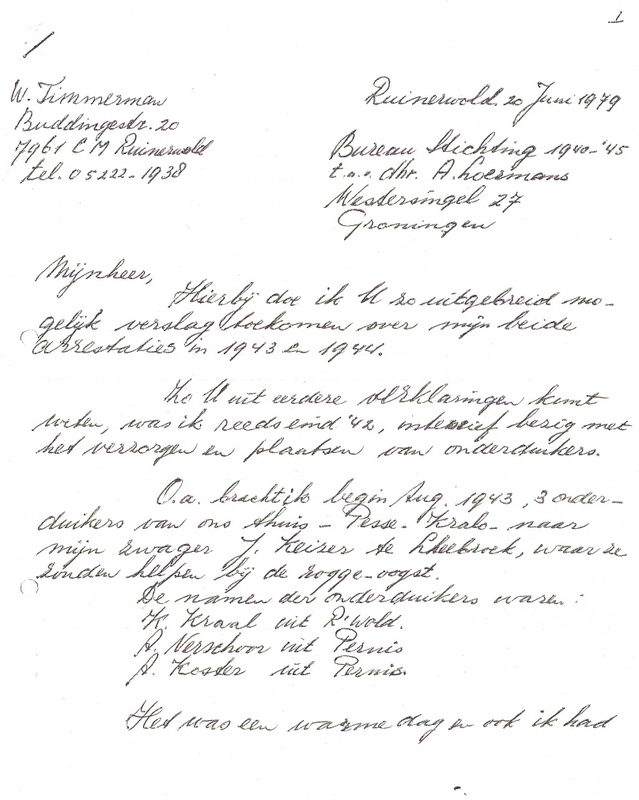 1
W. Timmerman
Buddingestr. 20
7961 CM Ruinerwold
tel. 05222-1938
Ruinerwold. 20 Juni 1979
Bureau Stichting 1940-'45
t.a.v. dhr. A. Loermans
Westersingel 27
Groningen
Mijnheer,
Hierbij doe ik U zo uitgebreid mo-
gelijk verslag toekomen over mijn beide
arrestaties in 1943 en 1944.
Zo U uit eerdere verklaringen kunt
weten, was ik reeds eind '42, intensief bezig met
het verzorgen en plaatsen van onderduikers.
O.a. bracht ik begin Aug. 1943, 3 onder-
duikers van ons thuis - Pesse - Kralo - naar
mijn zwager J. Keizer te Lheebroek, waar ze
zouden helpen bij de rogge-oogst.
De namen der onderduikers waren:
K. Kraal uit R'wold.
A. Verschoor uit Pernis
A. Koster uit Pernis.
Het was een warme dag en ook ik had